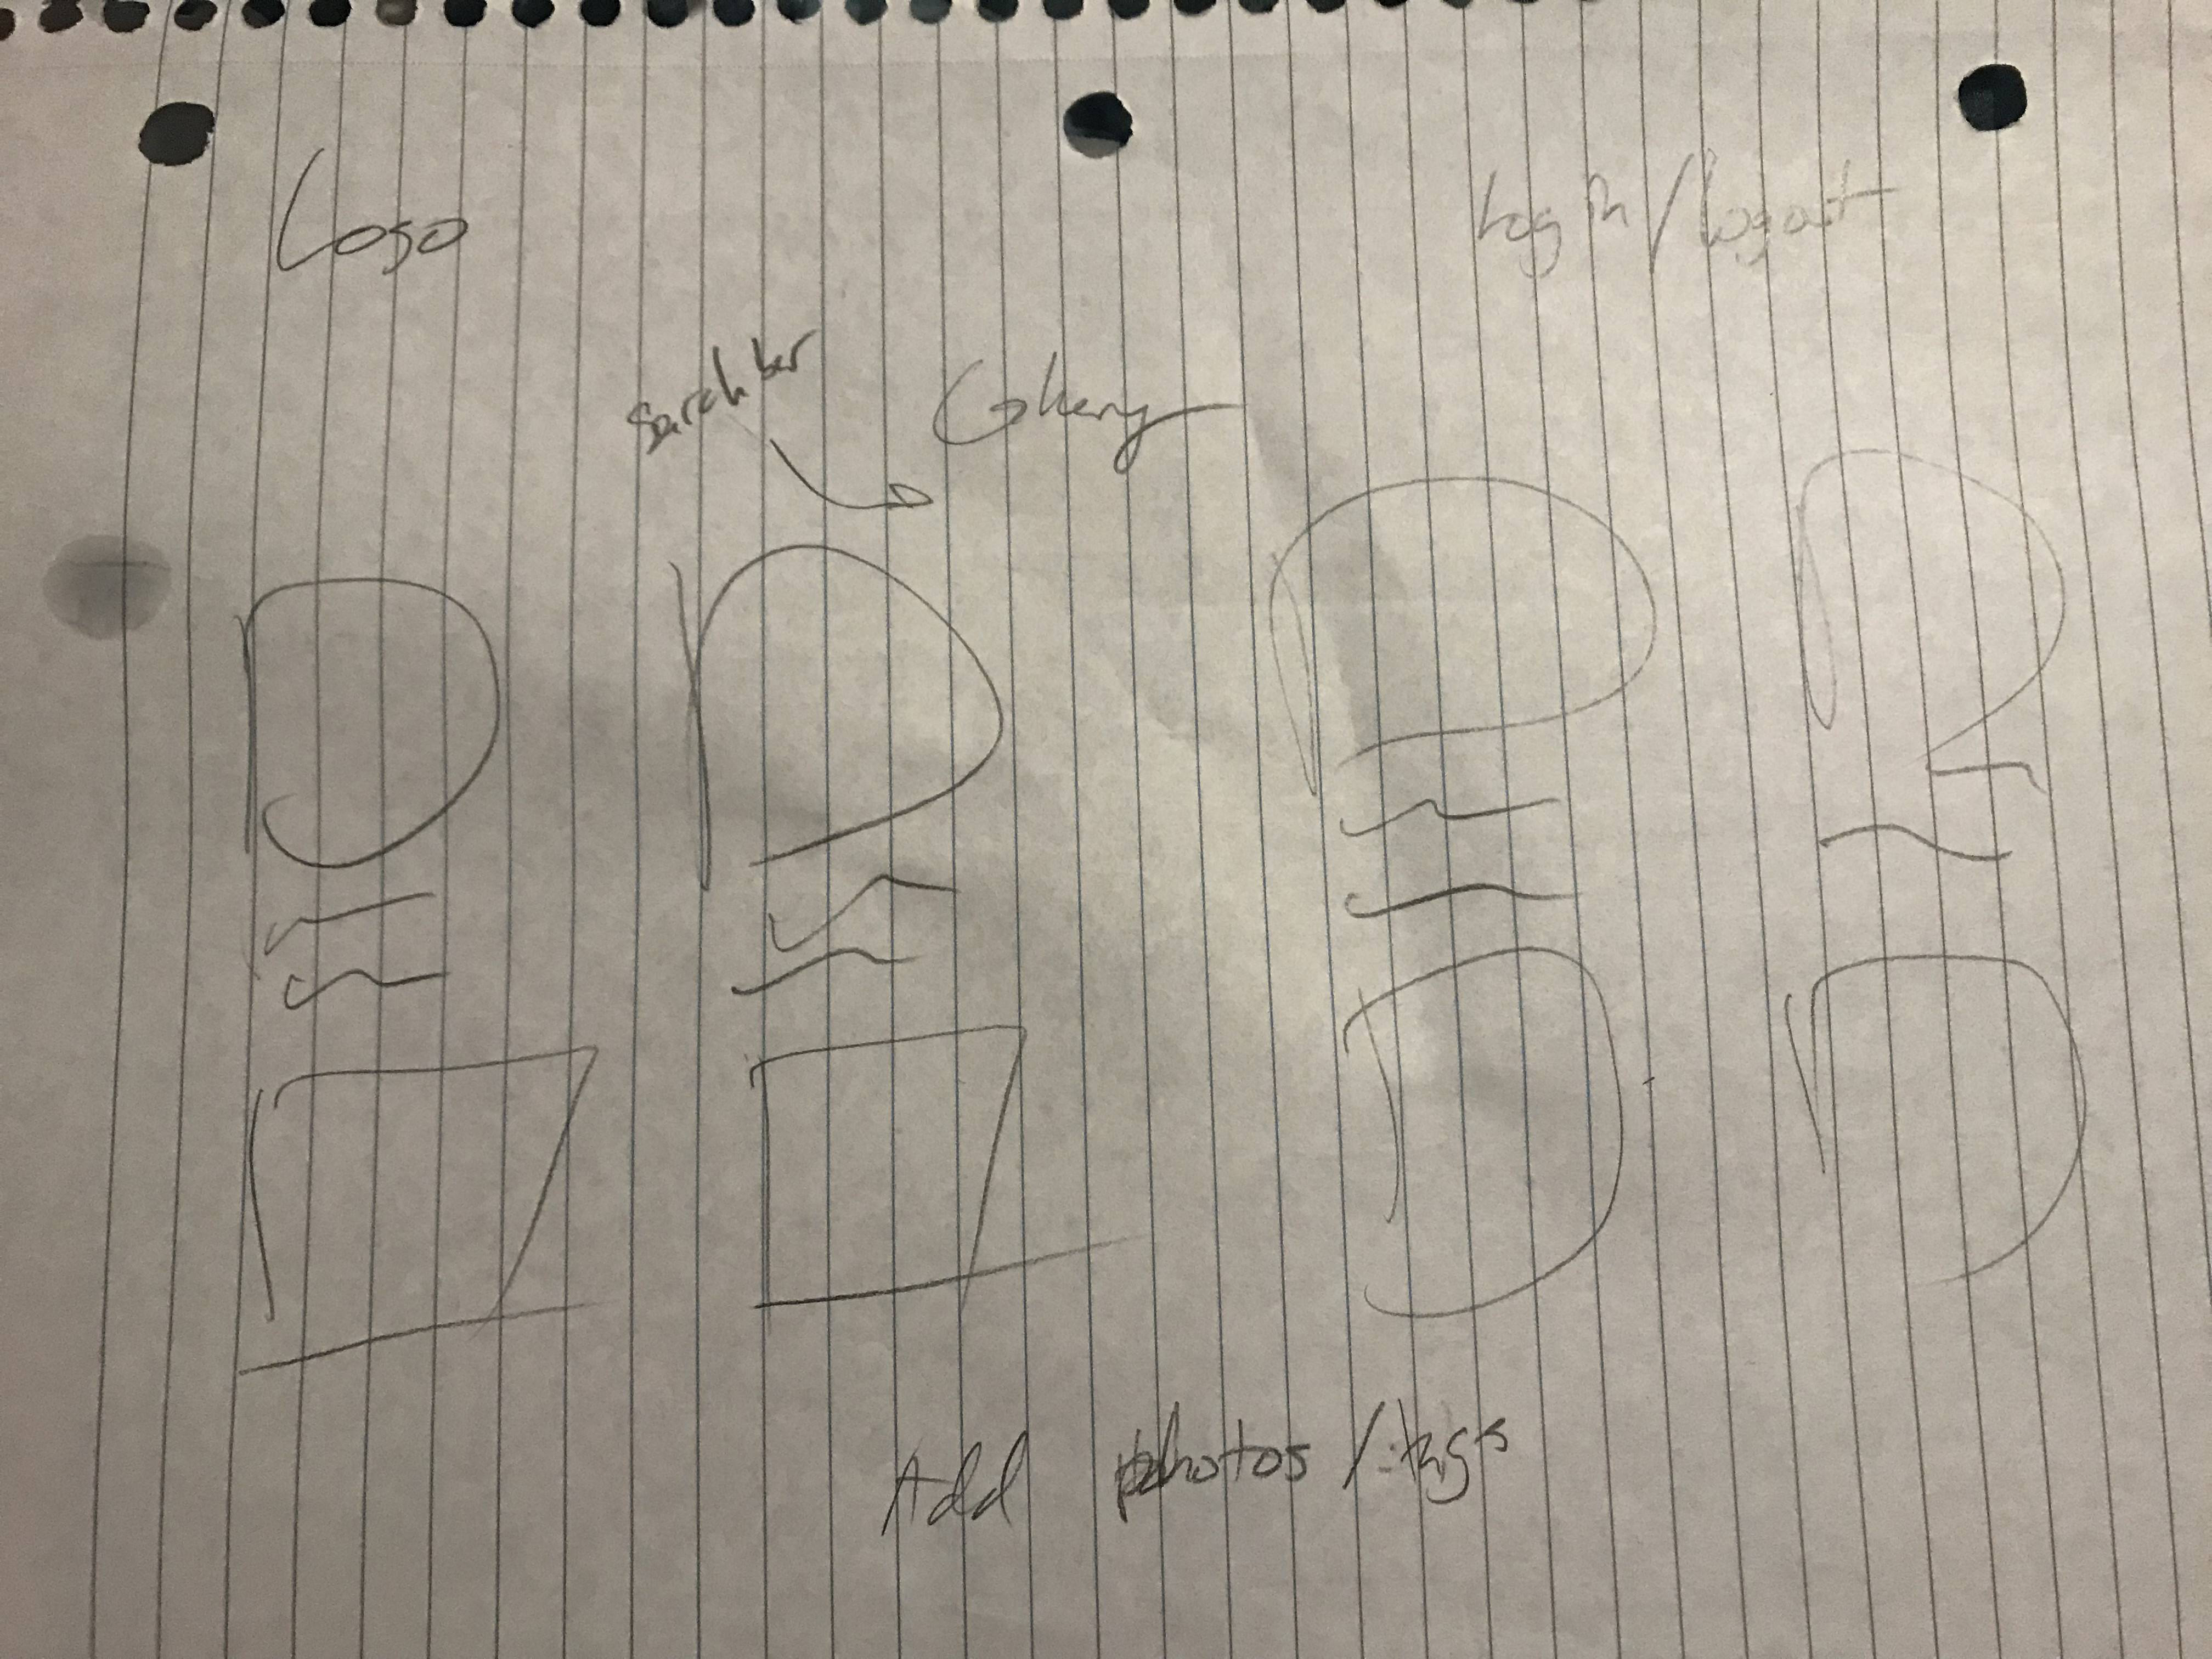 Logo
Log in / logout
Search bar
Gallery
Add photos / tags